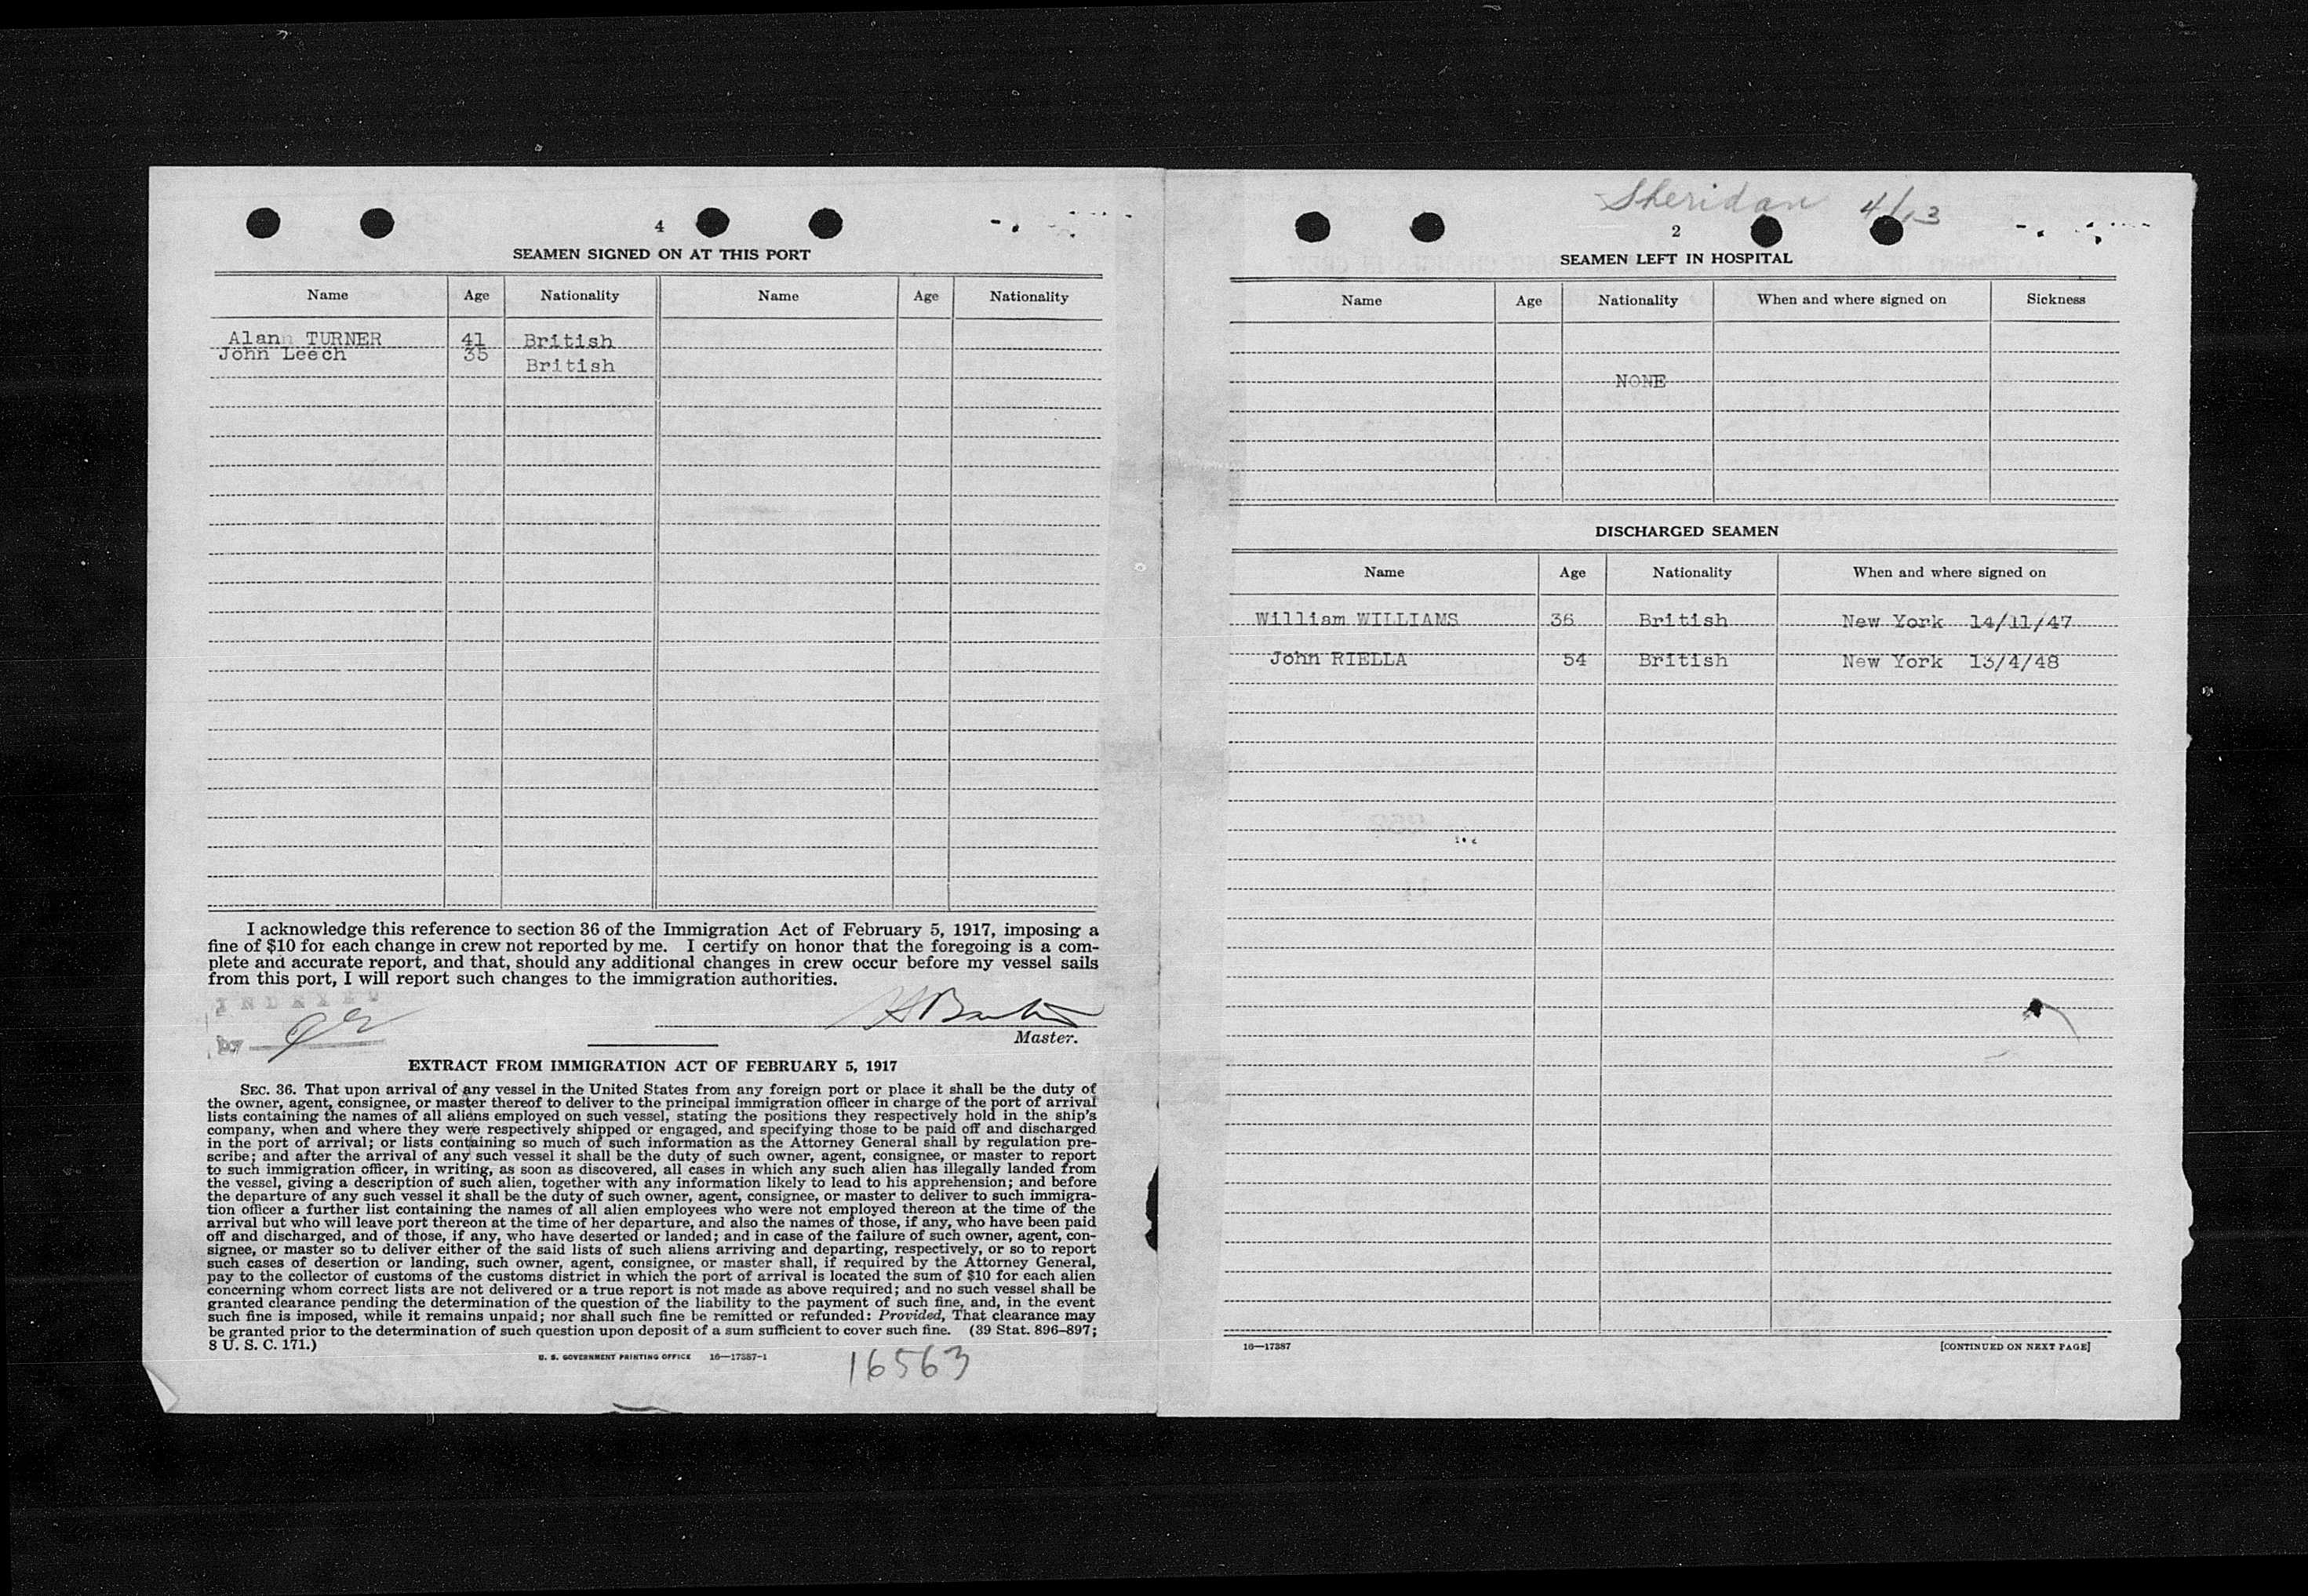 4
SEAMEN SIGNED ON AT THIS PORT
Name Age Nationality Name Age Nationality
Alann TURNER 41 British
John Leech 35 British
I acknowledge this reference to section 36 of the Immigration Act of February 5, 1917, imposing a
fine of $10 for each change in crew not reported by me. I certify on honor that the foregoing is a com-
plete and accurate report, and that, should any additional changes in crew occur before my vessel sails
from this port, I will report such changes to the immigration authorities.
INDEXED
by
Master.
EXTRACT FROM IMMIGRATION ACT OF FEBRUARY 5, 1917
SEC. 36. That upon arrival of any vessel in the United States from any foreign port or place it shall be the duty of
the owner, agent, consignee, or master thereof to deliver to the principal immigration officer in charge of the port of arrival
lists containing the names of all aliens employed on such vessel, stating the positions they respectively hold in the ship's
company, when and where they were respectively shipped or engaged, and specifying those to be paid off and discharged
in the port of arrival; or lists containing so much of such information as the Attorney General shall by regulation pre-
scribe; and after the arrival of any such vessel it shall be the duty of such owner, agent, consignee, or master to report
to such immigration officer, in writing, as soon as discovered, all cases in which any such alien has illegally landed from
the vessel, giving a description of such alien, together with any information likely to lead to his apprehension; and before
the departure of any such vessel it shall be the duty of such owner, agent, consignee, or master to deliver to such immigra-
tion officer a further list containing the names of all alien employees who were not employed thereon at the time of the
arrival but who will leave port thereon at the time of her departure, and also the names of those, if any, who have been paid
off and discharged, and of those, if any, who have deserted or landed; and in case of the failure of such owner, agent, con-
signee, or master so to deliver either of the said lists of such aliens arriving and departing, respectively, or so to report
such cases of desertion or landing, such owner, agent, consignee, or master shall, if required by the Attorney General,
pay to the collector of customs of the customs district in which the port of arrival is located the sum of $10 for each alien
concerning whom correct lists are not delivered or a true report is not made as above required; and no such vessel shall be
granted clearance pending the determination of the question of the liability to the payment of such fine, and, in the event
such fine is imposed, while it remains unpaid; nor shall such fine be remitted or refunded: Provided, That clearance may
be granted prior to the determination of such question upon deposit of a sum sufficient to cover such fine. (39 Stat. 896–897;
8 U. S. C. 171.)
U. S. GOVERNMENT PRINTING OFFICE 16—17387-1
16563
Sheridan 4/13
2
SEAMEN LEFT IN HOSPITAL
Name Age Nationality When and where signed on Sickness
NONE
DISCHARGED SEAMEN
Name Age Nationality When and where signed on
William WILLIAMS 36 British New York 14/11/47
John RIELLA 54 British New York 13/4/48
16—17387
[CONTINUED ON NEXT PAGE]